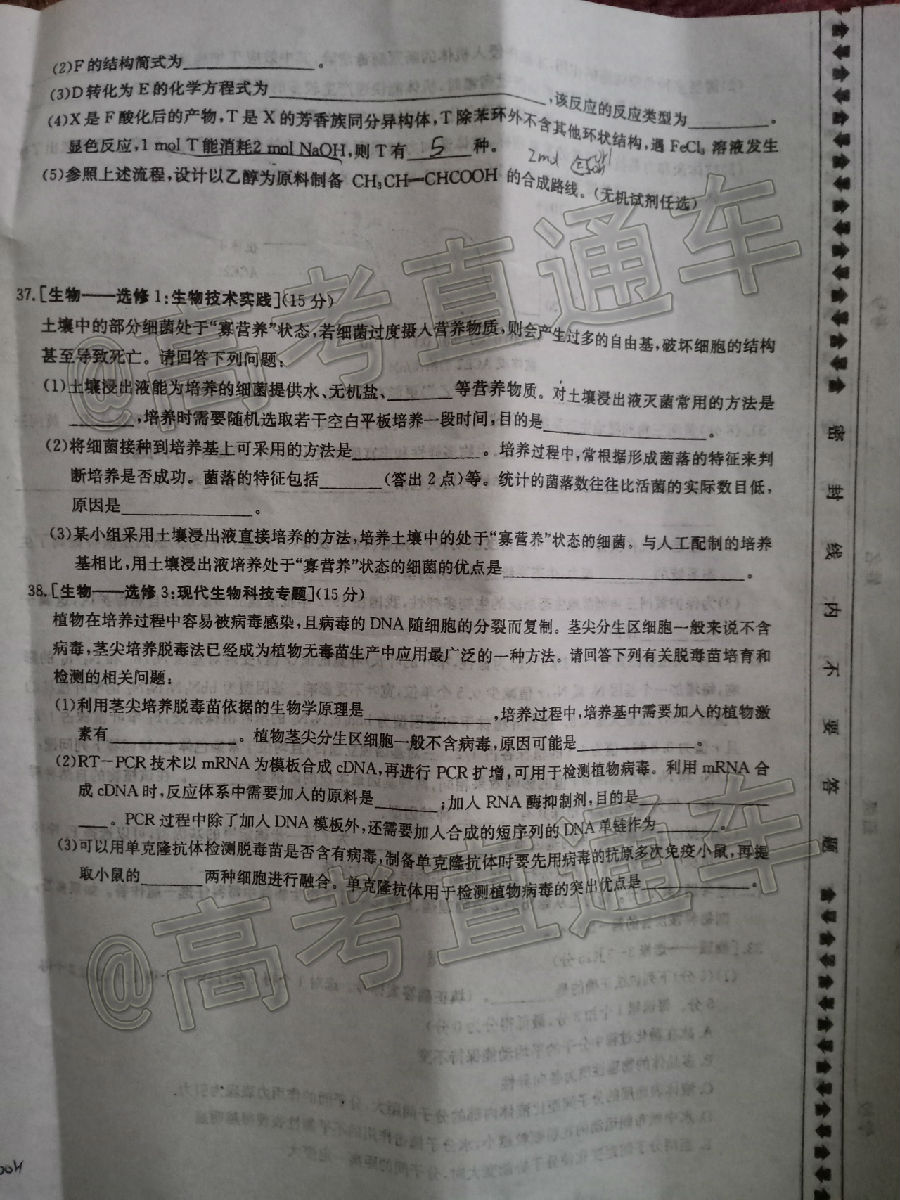 (2)F的结构简式为____________。
(3)D转化为E的化学方程式为____________,该反应的反应类型为____________。
(4)X是F酸化后的产物,T是X的芳香族同分异构体,T除苯环外不含其他环状结构,遇FeCl₃溶液发生
显色反应,1 mol T能消耗2 mol NaOH,则T有 5 种。
(5)参照上述流程,设计以乙醇为原料制备 CH₃CH—CHCOOH 的合成路线。(无机试剂任选)
37.[生物——选修1:生物技术实践](15分)
土壤中的部分细菌处于“寡营养”状态,若细菌过度摄入营养物质,则会产生过多的自由基,破坏细胞的结构
甚至导致死亡。请回答下列问题:
(1)土壤浸出液能为培养的细菌提供水、无机盐、________等营养物质。对土壤浸出液灭菌常用的方法是
________,培养时需要随机选取若干空白平板培养一段时间,目的是____________。
(2)将细菌接种到培养基上可采用的方法是____________。培养过程中,常根据形成菌落的特征来判
断培养是否成功。菌落的特征包括________(答出2点)等。统计的菌落数往往比活菌的实际数目低,
原因是____________。
(3)某小组采用土壤浸出液直接培养的方法,培养土壤中的处于“寡营养”状态的细菌。与人工配制的培养
基相比,用土壤浸出液培养处于“寡营养”状态的细菌的优点是____________。
38.[生物——选修3:现代生物科技专题](15分)
植物在培养过程中容易被病毒感染,且病毒的DNA随细胞的分裂而复制。茎尖分生区细胞一般来说不含
病毒,茎尖培养脱毒法已经成为植物无毒苗生产中应用最广泛的一种方法。请回答下列有关脱毒苗培育和
检测的相关问题:
(1)利用茎尖培养脱毒苗依据的生物学原理是____________,培养过程中,培养基中需要加入的植物激
素有____________。植物茎尖分生区细胞一般不含病毒,原因可能是____________。
(2)RT—PCR技术以mRNA为模板合成cDNA,再进行PCR扩增,可用于检测植物病毒。利用mRNA合
成cDNA时,反应体系中需要加入的原料是________;加入RNA酶抑制剂,目的是____________
____。PCR过程中除了加入DNA模板外,还需要加入合成的短序列的DNA单链作为________。
(3)可以用单克隆抗体检测脱毒苗是否含有病毒,制备单克隆抗体时要先用病毒的抗原多次免疫小鼠,再提
取小鼠的________两种细胞进行融合。单克隆抗体用于检测植物病毒的突出优点是____________。
密封线内不要答题
@高考直通车
@高考直通车